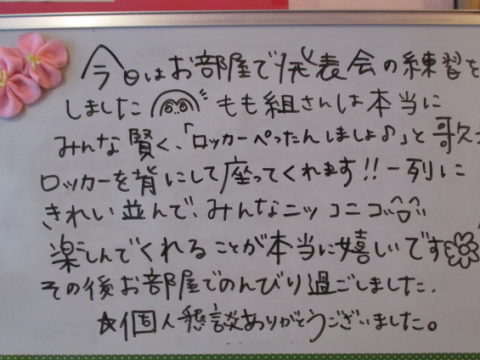 今日はお部屋で発表会の練習を
しました もも組さんは本当に
みんな賢く、「ロッカーぺったんしましょ♪」と歌う
ロッカーを背にして座ってくれます!!一列に
きれい並んで、みんなニッコニコ^^
楽しんでくれることが本当に嬉しいです
その後お部屋でのんびり過ごしました.
☆個人懇談ありがとうございました。